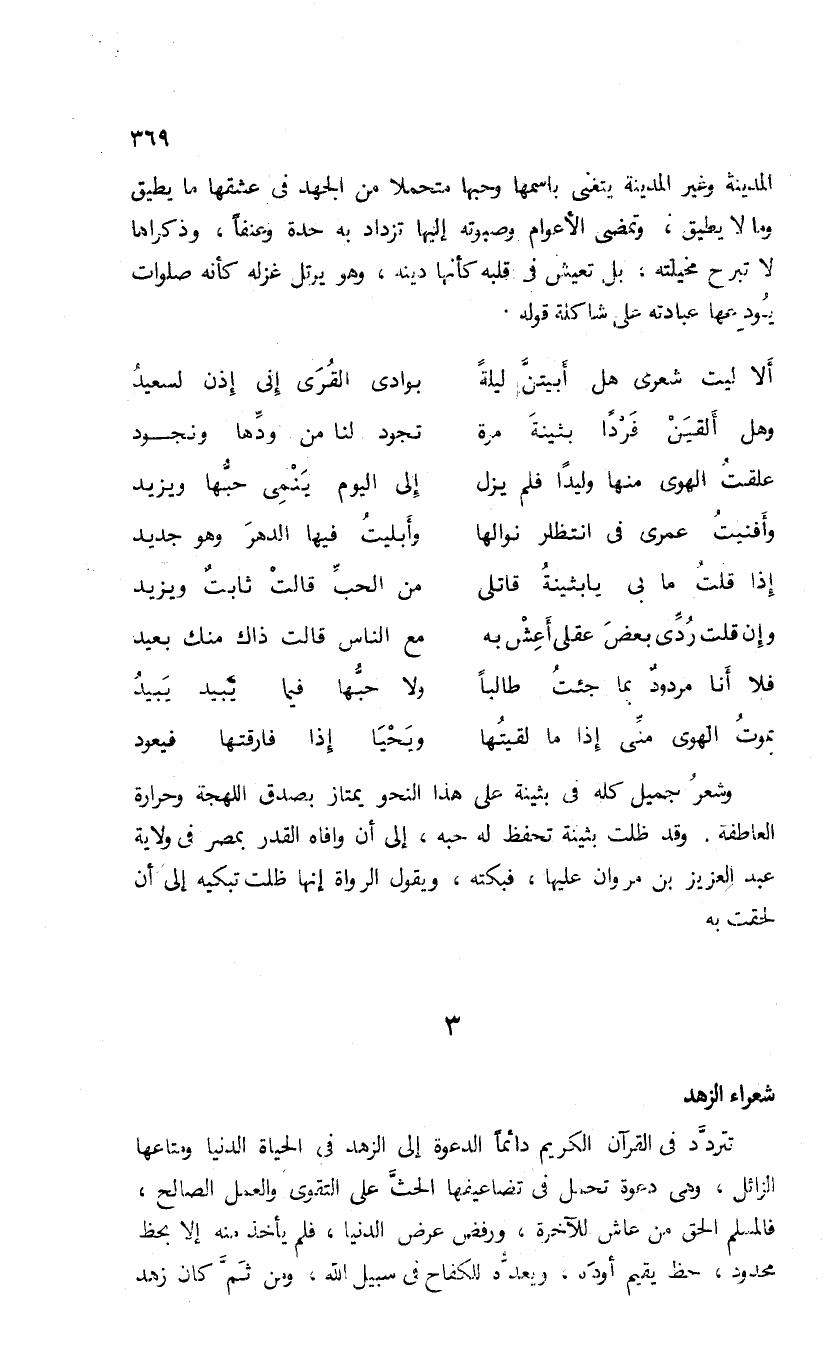 ٣٦٩
المدينة وغير المدينة يتغنى باسمها وحبها متحملا من الجهد فى عشقها ما يطيق
وما لا يطيق ؛ وتمضى الأعوام وصبوته إليها تزداد به حدة وعنفاً ، وذكراها
لا تبرح مخيلته ؛ بل تعيش فى قلبه كأنها دينه ، وهو يرتل غزله كأنه صلوات
يؤدِّى بها عبادته على شاكلة قوله .
ألا ليت شعرى هل أَبيتنَّ ليلةً بوادى القُرَى إنى إذن لسعيدُ
وهل أَلقيَنْ فَرْدًا بثينةَ مرة تجود لنا من ودِّها ونجـــود
علقتُ الهوى منها وليدًا فلم يزل إلى اليوم يَنْمِى حبُّها ويزيد
وأَفنيتُ عمرى فى انتظار نوالها وأَبليتُ فيها الدهرَ وهو جديد
إذا قلتُ ما بى يابثينةُ قاتلى من الحبِّ قالتْ ثابتٌ ويزيد
وإن قلت رُدِّى بعضَ عقلى أَعِشْ به مع الناس قالت ذاك منك بعيد
فلا أَنا مردودٌ بما جئتُ طالباً ولا حبُّها فيما يَبيد يَبيدُ
يموتُ الهوى منِّى إذا ما لقيتُها ويَحْيَا إذا فارقتها فيعود
وشعرُ جميل كله فى بثينة على هذا النحو يمتاز بصدق اللهجة وحرارة
العاطفة . وقد ظلت بثينة تحفظ له حبه ، إلى أن وافاه القدر بمصر فى ولاية
عبد العزيز بن مروان عليها ، فبكته ، ويقول الرواة إنها ظلت تبكيه إلى أن
لحقت به
٣
شعراء الزهد
تتردَّد فى القرآن الكريم دائماً الدعوة إلى الزهد فى الحياة الدنيا ومتاعها
الزائل ، وهى دعوة تحمل فى تضاعيفها الحثَّ على التقوى والعمل الصالح ،
فالمسلم الحق من عاش للآخرة ، ورفض عرض الدنيا ، فلم يأخذ منه إلا بحظ
محدود ، حظ يقيم أوده ، ويعدُّه للكفاح فى سبيل الله ، ومن ثَمَّ كان زهد